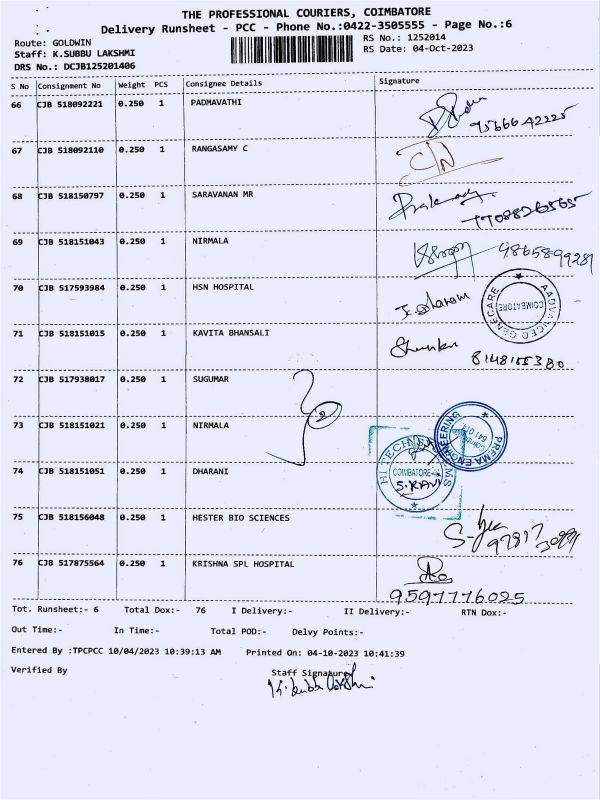 THE PROFESSIONAL COURIERS, COIMBATORE
Delivery Runsheet - PCC - Phone No.:0422-3505555 - Page No.:6
Route: GOLDWIN
RS No.: 1252014
Staff: K.SUBBU LAKSHMI
RS Date: 04-Oct-2023
DRS No.: DCJB125201406
S No Consignment No Weight PCS Consignee Details Signature
66 CJB 518092221 0.250 1 PADMAVATHI
9566642225
67 CJB 518092110 0.250 1 RANGASAMY C
68 CJB 518150797 0.250 1 SARAVANAN MR
7708826565
69 CJB 518151043 0.250 1 NIRMALA
9865899281
70 CJB 517593984 0.250 1 HSN HOSPITAL
AADVANCED GENECARE COIMBATORE
71 CJB 518151015 0.250 1 KAVITA BHANSALI
72 CJB 517938017 0.250 1 SUGUMAR
73 CJB 518151021 0.250 1 NIRMALA
PREMA ENGINEERING
74 CJB 518151051 0.250 1 DHARANI
HI TECH
COIMBATORE
S.RAVI
75 CJB 518156048 0.250 1 HESTER BIO SCIENCES
97817
76 CJB 517875564 0.250 1 KRISHNA SPL HOSPITAL
9597776025
Tot. Runsheet:- 6 Total Dox:- 76 I Delivery:- II Delivery:- RTN Dox:-
Out Time:- In Time:- Total POD:- Delvy Points:-
Entered By :TPCPCC 10/04/2023 10:39:13 AM Printed On: 04-10-2023 10:41:39
Verified By Staff Signature